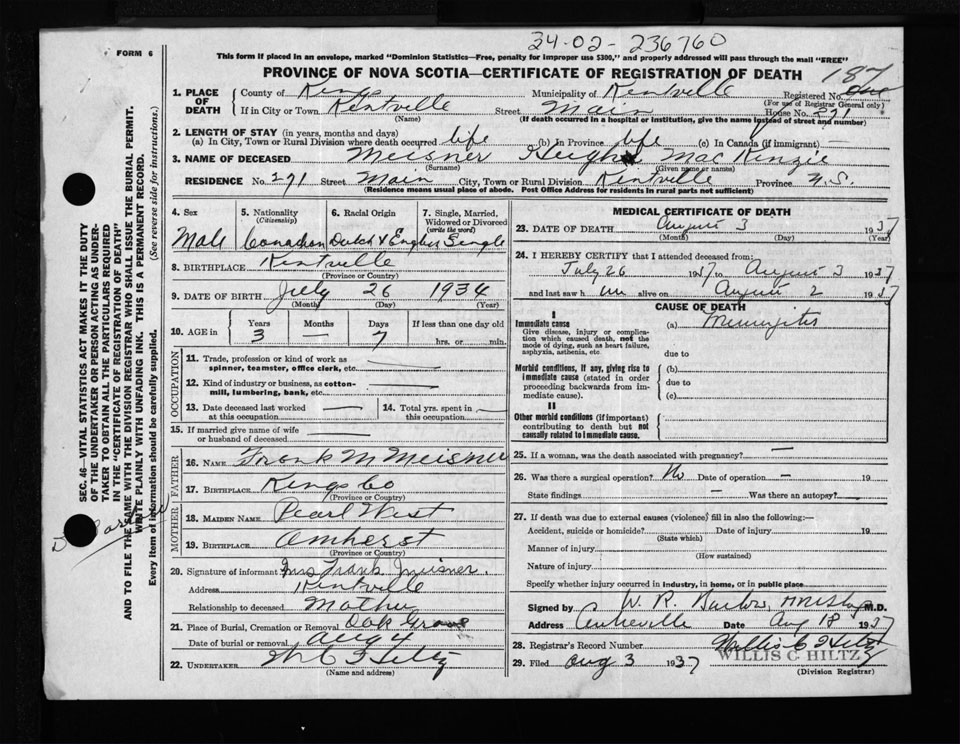 34-02-236760
FORM 6
This form if placed in an envelope, marked "Dominion Statistics—Free, penalty for improper use $300," and properly addressed will pass through the mail "FREE"
PROVINCE OF NOVA SCOTIA—CERTIFICATE OF REGISTRATION OF DEATH
187
1. PLACE OF DEATH
County of Kings Municipality of Kentville Registered No.
(For use of Registrar General only)
If in City or Town Kentville Street Main House No. 271
(Name) (If death occurred in a hospital or institution, give the name instead of street and number)
2. LENGTH OF STAY (in years, months and days)
(a) In City, Town or Rural Division where death occurred life (b) In Province life (c) In Canada (if immigrant) —
3. NAME OF DECEASED Meisner Hugh MacKenzie
(Surname) (Given name or names)
RESIDENCE No. 271 Street Main City, Town or Rural Division Kentville Province N.S.
(Residence means usual place of abode. Post Office Address for residents in rural parts not sufficient)
4. Sex
Male
5. Nationality (Citizenship)
Canadian
6. Racial Origin
Dutch & English
7. Single, Married, Widowed or Divorced (write the word)
Single
8. BIRTHPLACE Kentville
(Province or Country)
9. DATE OF BIRTH July 26 1934
(Month) (Day) (Year)
10. AGE in Years Months Days If less than one day old
3 — 7 hrs. or min.
OCCUPATION
11. Trade, profession or kind of work as spinner, teamster, office clerk, etc. —
12. Kind of industry or business, as cotton-mill, lumbering, bank, etc. —
13. Date deceased last worked at this occupation —
14. Total yrs. spent in this occupation —
15. If married give name of wife or husband of deceased —
FATHER
16. NAME Frank M Meisner
17. BIRTHPLACE Kings Co
(Province or Country)
MOTHER
18. MAIDEN NAME Pearl West
19. BIRTHPLACE Amherst
(Province or Country)
20. Signature of informant Mrs Frank Meisner.
Address Kentville
Relationship to deceased Mother
21. Place of Burial, Cremation or Removal Oak Grove
Date of burial or removal Aug 4
22. UNDERTAKER W C Hiltz
(Name and address)
MEDICAL CERTIFICATE OF DEATH
23. DATE OF DEATH August 3 1937
(Month) (Day) (Year)
24. I HEREBY CERTIFY that I attended deceased from:
July 26 1937 to August 3 1937
and last saw h im alive on August 2 1937
CAUSE OF DEATH
I
Immediate cause
Give disease, injury or complication which caused death, not the mode of dying, such as heart failure, asphyxia, asthenia, etc.
(a) Meningitis
due to
Morbid conditions, if any, giving rise to immediate cause (stated in order proceeding backwards from immediate cause).
(b)
due to
(c)
II
Other morbid conditions (if important) contributing to death but not causally related to immediate cause.
25. If a woman, was the death associated with pregnancy? —
26. Was there a surgical operation? No Date of operation — 19
State findings — Was there an autopsy? —
27. If death was due to external causes (violence) fill in also the following:—
Accident, suicide or homicide? Date of injury 19
(State which)
Manner of injury
(How sustained)
Nature of injury
Specify whether injury occurred in industry, in home, or in public place
Signed by W. R. Barlow, M.D.
Address Date Aug 18 1937
28. Registrar's Record Number Willis C Hiltz
WILLIS C. HILTZ
29. Filed Aug 3 1937
(Division Registrar)
SEC. 46—VITAL STATISTICS ACT MAKES IT THE DUTY
OF THE UNDERTAKER OR PERSON ACTING AS UNDER-
TAKER TO OBTAIN ALL THE PARTICULARS REQUIRED
IN THE "CERTIFICATE OF REGISTRATION OF DEATH"
AND TO FILE THE SAME WITH THE DIVISION REGISTRAR WHO SHALL ISSUE THE BURIAL PERMIT.
WRITE PLAINLY WITH UNFADING INK. THIS IS A PERMANENT RECORD.
Every item of information should be carefully supplied. (See reverse side for instructions.)